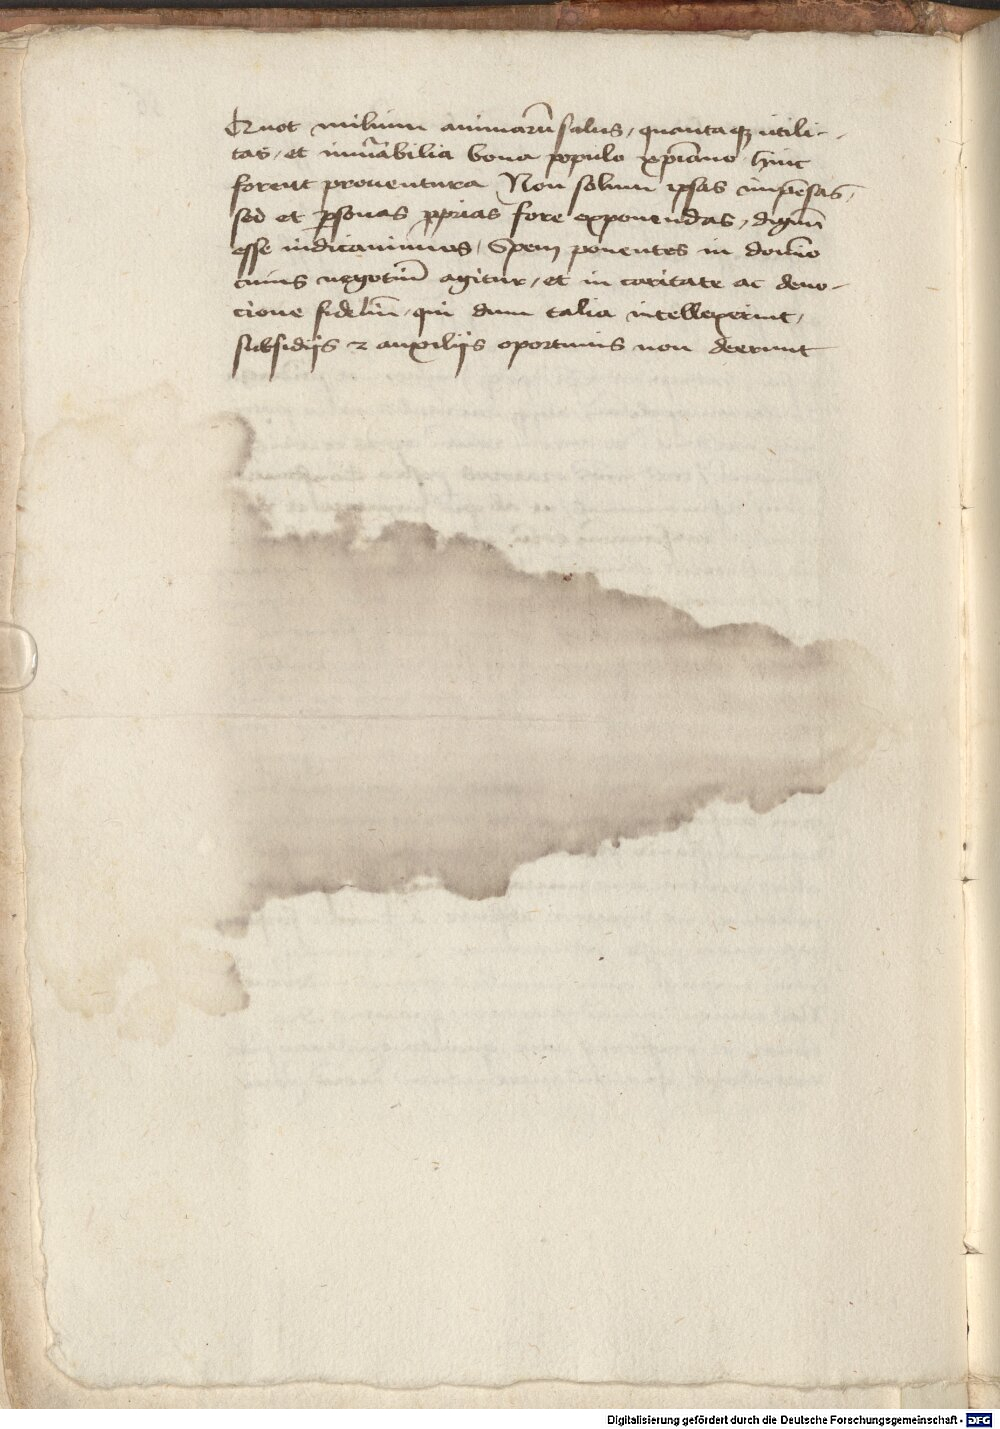 Quot milium animarū salus, quantaqꝫ utili-
tas, et innūabilia bona populo xp̄iano hinc
forent prouentura Non solum ipsas impēsas,
sed et ꝑsonas ꝓprias fore exponendas, dignū
esse iudicauimus, Spem ponentes in domīo
cuius negotiū agitur, et in caritate ac deuo-
cione fideliū, qui dum talia intellexerint,
subsidijs ⁊ auxilijs oportunis non deerunt
Digitalisierung gefördert durch die Deutsche Forschungsgemeinschaft - DFG